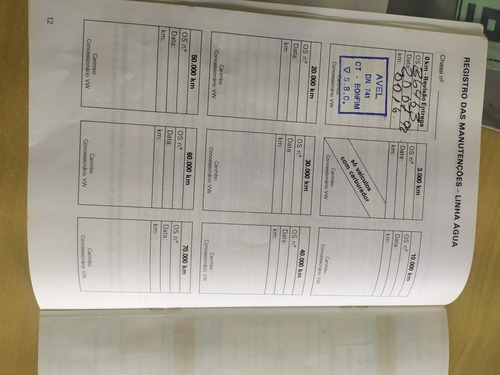 REGISTRO DAS MANUTENÇÕES - LINHA ÁGUA
Chassi nº
0 km - Revisão Entrega
OS
Data
km: 0016
AVEL
DN 741
CT - BOMFIM
S.B.C.
Concessionário VW
3.000 km
OS nº
Data:
km:
só veículos
com carburador
10.000 km
OS nº
Data:
km:
Carimbo
Concessionário VW
20.000 km
OS nº
Data:
km:
Carimbo
Concessionário VW
30.000 km
OS nº
Data:
km:
Carimbo
Concessionário VW
40.000 km
OS nº
Data:
km:
Carimbo
Concessionário VW
50.000 km
OS nº
Data:
km:
Carimbo
Concessionário VW
60.000 km
OS nº
Data:
km:
Carimbo
Concessionário VW
70.000 km
OS nº
Data:
km:
Carimbo
Concessionário VW
12